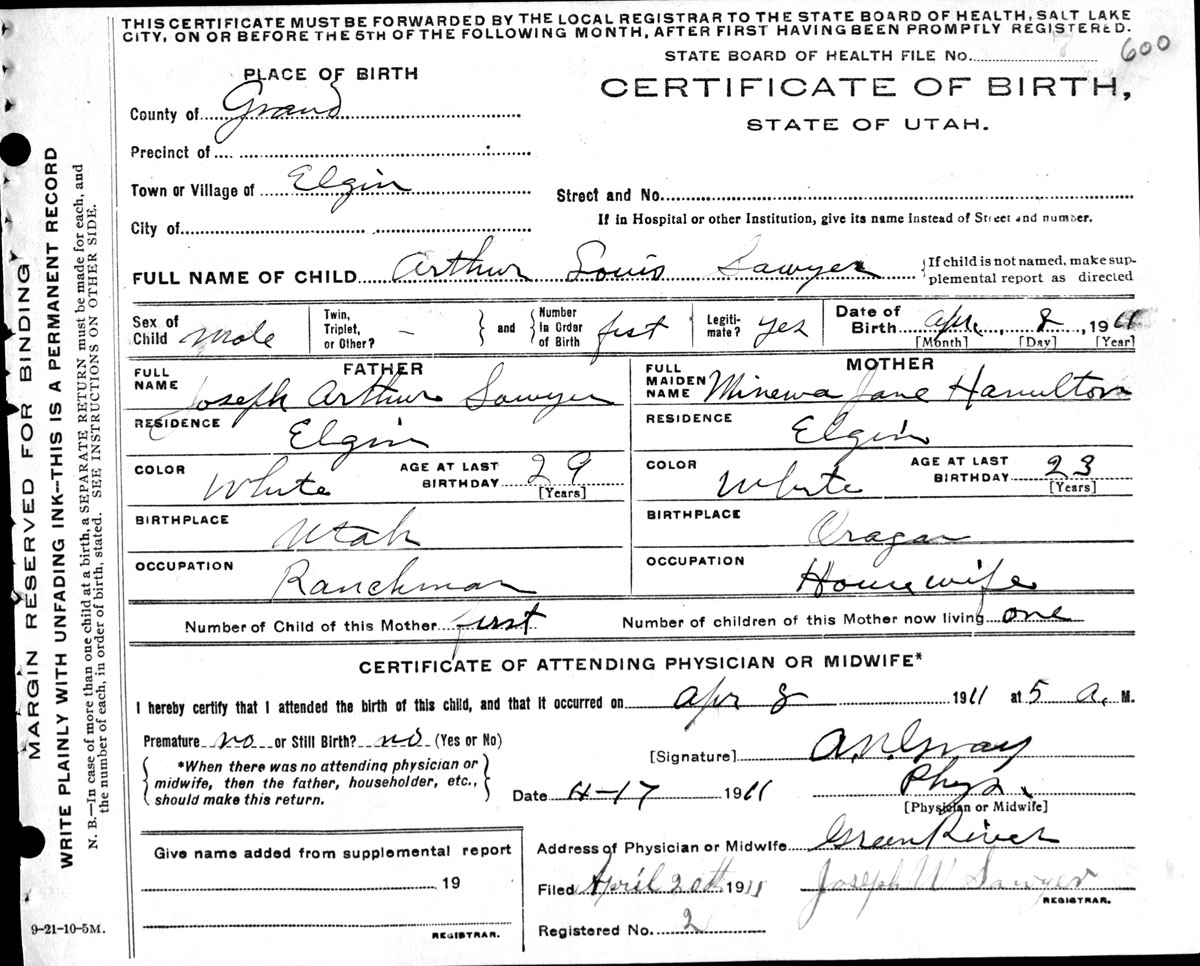 THIS CERTIFICATE MUST BE FORWARDED BY THE LOCAL REGISTRAR TO THE STATE BOARD OF HEALTH, SALT LAKE
CITY, ON OR BEFORE THE 5TH OF THE FOLLOWING MONTH, AFTER FIRST HAVING BEEN PROMPTLY REGISTERED.
STATE BOARD OF HEALTH FILE No. 600
PLACE OF BIRTH
CERTIFICATE OF BIRTH,
STATE OF UTAH.
County of Grand
Precinct of
Town or Village of Elgin
Street and No.
If in Hospital or other Institution, give its name instead of Street and number.
City of
FULL NAME OF CHILD Arthur Louis Sawyer
If child is not named, make sup-
plemental report as directed
Sex of Child Male
Twin, Triplet, or Other? -
and
Number in Order of Birth first
Legiti-mate? yes
Date of Birth Apr. 8, 1911
[Month] [Day] [Year]
FATHER
FULL NAME Joseph Arthur Sawyer
RESIDENCE Elgin
COLOR White AGE AT LAST BIRTHDAY 29 [Years]
BIRTHPLACE Utah
OCCUPATION Ranchman
MOTHER
FULL MAIDEN NAME Minerva Jane Hamilton
RESIDENCE Elgin
COLOR White AGE AT LAST BIRTHDAY 23 [Years]
BIRTHPLACE Oragan
OCCUPATION Housewife
Number of Child of this Mother first Number of children of this Mother now living one
CERTIFICATE OF ATTENDING PHYSICIAN OR MIDWIFE*
I hereby certify that I attended the birth of this child, and that it occurred on Apr 8 1911 at 5 a. M.
Premature no or Still Birth? no (Yes or No)
*When there was no attending physician or
midwife, then the father, householder, etc.,
should make this return.
[Signature] Gray
Phys.
[Physician or Midwife]
Date 4-17 1911
Address of Physician or Midwife Green River
Filed April 20th 1911 Joseph W Sawyer
REGISTRAR.
Registered No. 2
Give name added from supplemental report
19
REGISTRAR.
9-21-10-5M.
MARGIN RESERVED FOR BINDING
WRITE PLAINLY WITH UNFADING INK--THIS IS A PERMANENT RECORD
N. B.—In case of more than one child at a birth, a SEPARATE RETURN must be made for each, and
the number of each, in order of birth, stated. SEE INSTRUCTIONS ON OTHER SIDE.